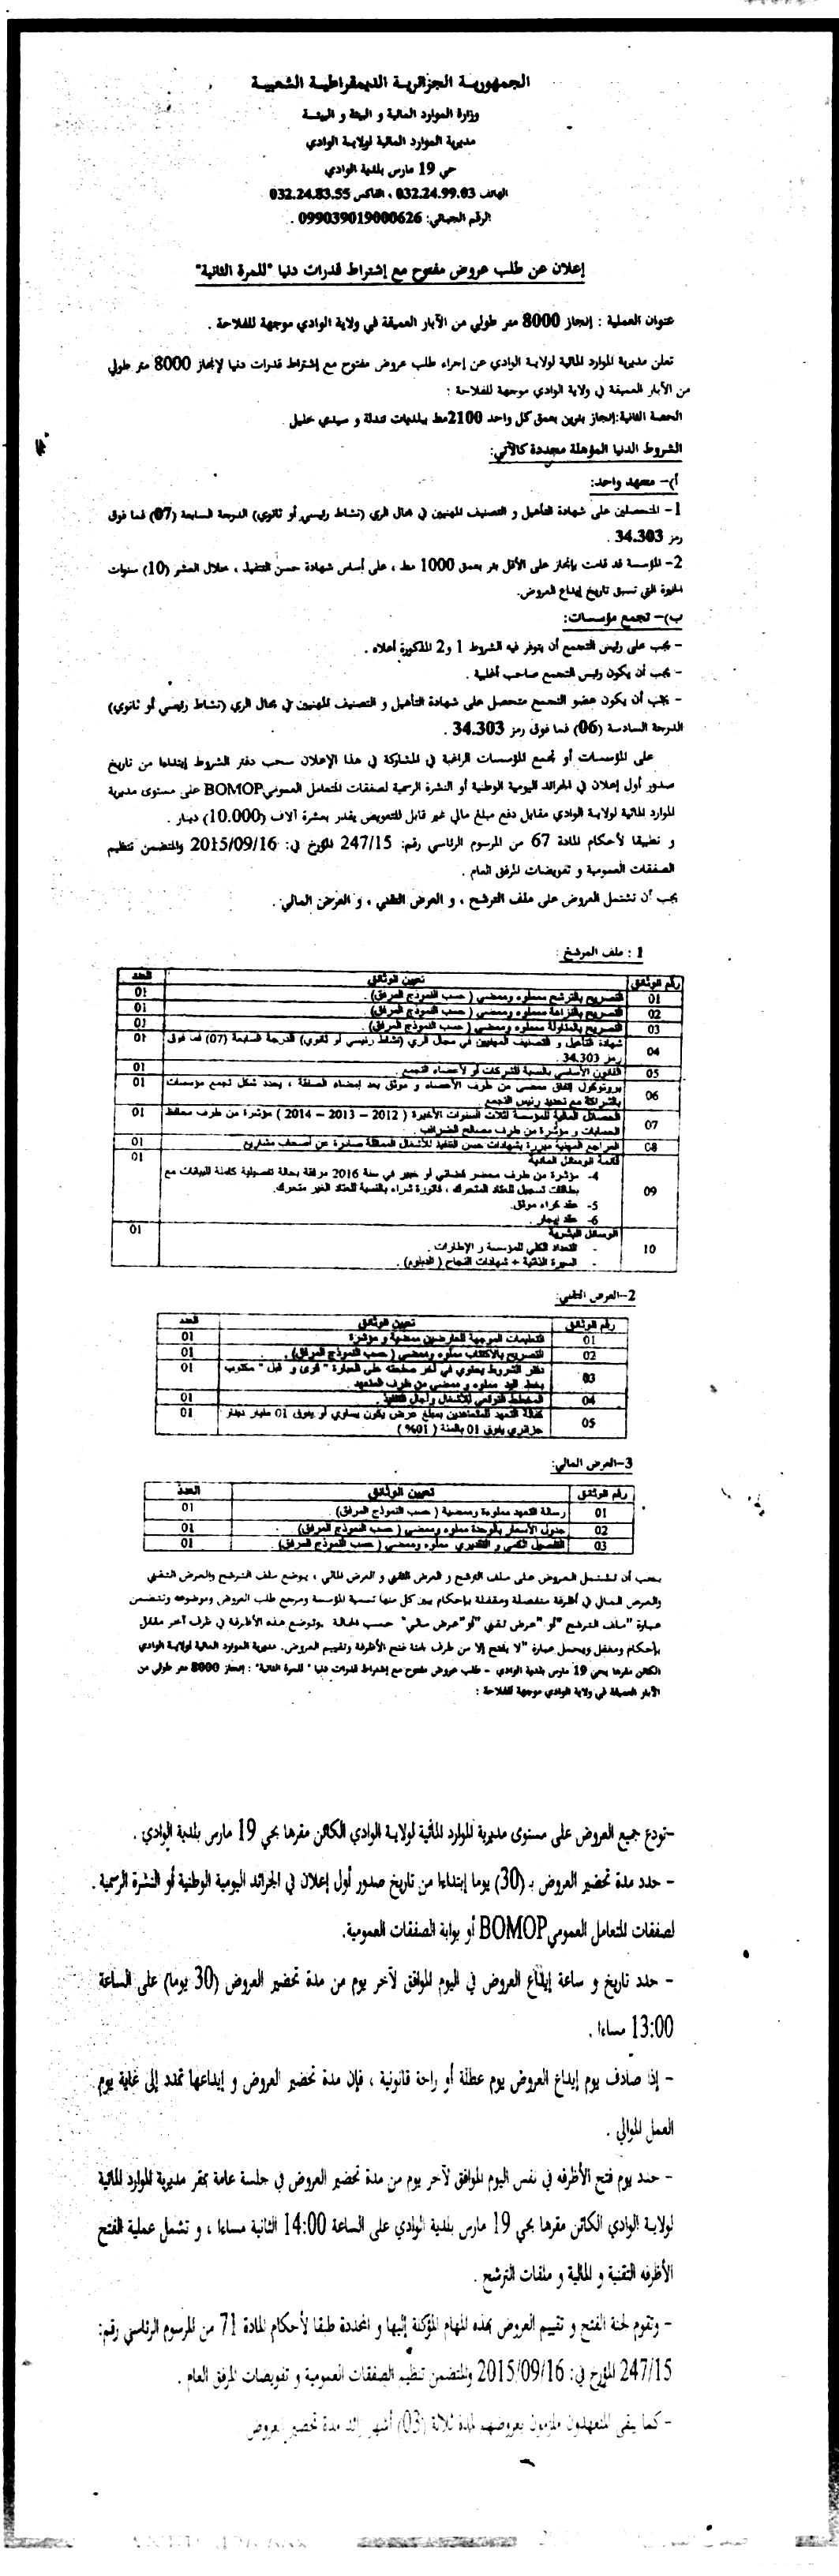 الجمهورية الجزائرية الديمقراطية الشعبية
وزارة الموارد المائية و البيئة
مديرية الموارد المائية لولاية الوادي
حي 19 مارس بلدية الوادي
الهاتف 032.24.99.03 ، الفاكس 032.24.83.55
الرقم الجبائي: 099039019000626 .
إعلان عن طلب عروض مفتوح مع إشتراط قدرات دنيا "للمرة الثانية"
عنوان العملية : إنجاز 8000 متر طولي من الآبار العميقة في ولاية الوادي موجهة للفلاحة .
تعلن مديرية الموارد المائية لولاية الوادي عن إجراء طلب عروض مفتوح مع إشتراط قدرات دنيا لإنجاز 8000 متر طولي
من الآبار العميقة في ولاية الوادي موجهة للفلاحة :
الحصة الثانية:إنجاز بئرين بعمق كل واحد 2100مط ببلديات تندلة و سيدي خليل
الشروط الدنيا المؤهلة محددة كالآتي:
أ)- متعهد واحد:
1- المتحصلين على شهادة التأهيل و التصنيف المهنيين في مجال الري (نشاط رئيسي أو ثانوي) الدرجة السابعة (07) فما فوق
رمز 34.303 .
2- المؤسسة قد قامت بإنجاز على الأقل بئر بعمق 1000 مط ، على أساس شهادة حسن التنفيذ ، خلال العشر (10) سنوات
الأخيرة التي تسبق تاريخ إيداع العروض.
ب)- تجمع مؤسسات:
- يجب على رئيس التجمع أن يتوفر فيه الشروط 1 و2 المذكورة أعلاه .
- يجب أن يكون رئيس التجمع صاحب أغلبية .
- يجب أن يكون عضو التجمع متحصل على شهادة التأهيل و التصنيف المهنيين في مجال الري (نشاط رئيسي أو ثانوي)
الدرجة السادسة (06) فما فوق رمز 34.303 .
على المؤسسات أو تجمع المؤسسات الراغبة في المشاركة في هذا الإعلان سحب دفتر الشروط إبتداءا من تاريخ
صدور أول إعلان في الجرائد اليومية الوطنية أو النشرة الرسمية لصفقات المتعامل العموميBOMOP على مستوى مديرية
الموارد المائية لولاية الوادي مقابل دفع مبلغ مالي غير قابل للتعويض يقدر بعشرة آلاف (10.000) دينار .
و تطبيقا لأحكام المادة 67 من المرسوم الرئاسي رقم: 247/15 المؤرخ في: 2015/09/16 والمتضمن تنظيم
الصفقات العمومية و تفويضات المرفق العام .
يجب أن تشتمل العروض على ملف الترشح ، و العرض التقني ، و العرض المالي .
1 : ملف الترشح :
رقم الوثائق تعيين الوثائق العدد
01 التصريح بالترشح مملوء وممضي ( حسب النموذج المرفق) . 01
02 التصريح بالنزاهة مملوء وممضي ( حسب النموذج المرفق) . 01
03 التصريح بالمناولة مملوء وممضي ( حسب النموذج المرفق) . 01
04 شهادة التأهيل و التصنيف المهنيين في مجال الري (نشاط رئيسي أو ثانوي) الدرجة السابعة (07) فما فوق 01
رمز 34.303 .
05 القانون الأساسي بالنسبة للشركات أو لأعضاء التجمع 01
06 بروتوكول إتفاق ممضي من طرف الأعضاء و موثق بعد إمضاء الصفقة ، يحدد شكل تجمع مؤسسات 01
بالشراكة مع تحديد رئيس التجمع
07 الحصائل المالية للمؤسسة لثلاث السنوات الأخيرة ( 2012 – 2013 – 2014 ) مؤشرة من طرف محافظ 01
الحسابات و مؤشرة من طرف مصالح الضرائب .
08 المراجع المهنية مبررة بشهادات حسن التنفيذ للأشغال المماثلة صادرة عن أصحاب مشاريع 01
09 قائمة الوسائل المادية 01
4- مؤشرة من طرف محضر قضائي أو خبير في سنة 2016 مرفقة بحالة تفصيلية كاملة للبيانات مع
بطاقات تسجيل للعتاد المتحرك ، فاتورة شراء بالنسبة للعتاد الغير متحرك.
5- عقد كراء موثق.
6- عقد إيجار .
10 الوسائل البشرية 01
- التعداد الكلي للمؤسسة و الإطارات .
- السيرة الذاتية + شهادات النجاح ( الدبلوم) .
2-العرض التقني:
رقم الوثائق تعيين الوثائق العدد
01 التعليمات الموجهة للعارضين ممضية و مؤشرة 01
02 التصريح بالاكتتاب مملوء وممضي ( حسب النموذج المرفق) . 01
03 دفتر الشروط يحتوي في آخر صفحته على العبارة " قرئ و قبل " مكتوب 01
بخط اليد مملوء و ممضي من طرف المتعهد
04 المخطط التوقعي للأشغال وآجال التنفيذ 01
05 كفالة التعهد للمتعاهدين بمبلغ عرض يكون يساوي أو يفوق 01 مليار دينار 01
جزائري يفوق 01 بالمئة ( 01% )
3-العرض المالي:
رقم الوثائق تعيين الوثائق العدد
01 رسالة التعهد مملوءة وممضية ( حسب النموذج المرفق) . 01
02 جدول الأسعار بالوحدة مملوء وممضي ( حسب النموذج المرفق) . 01
03 التفصيل الكمي و التقديري مملوء وممضي ( حسب النموذج المرفق) 01
يجب أن تشتمل العروض على ملف الترشح و العرض التقني و العرض المالي ، يوضع ملف الترشح والعرض التقني
والعرض المالي في أظرفة منفصلة ومقفلة بإحكام يبين كل منها تسمية المؤسسة ومرجع طلب العروض وموضوعه وتتضمن
عبارة "ملف الترشح "أو "عرض تقني "أو"عرض مالي" حسب الحالة .وتوضع هذه الأظرفة في ظرف آخر مقفل
بإحكام ومغفل ويحمل عبارة "لا يفتح إلا من طرف لجنة فتح الأظرفة وتقييم العروض. مديرية الموارد المائية لولاية الوادي
الكائن مقرها بحي 19 مارس بلدية الوادي - طلب عروض مفتوح مع إشتراط قدرات دنيا " للمرة الثانية" : إنجاز 8000 متر طولي من
الآبار العميقة في ولاية الوادي موجهة للفلاحة :
-تودع جميع العروض على مستوى مديرية الموارد المائية لولاية الوادي الكائن مقرها بحي 19 مارس بلدية الوادي .
- حدد مدة تحضير العروض بـ (30) يوما إبتداءا من تاريخ صدور أول إعلان في الجرائد اليومية الوطنية أو النشرة الرسمية .
لصفقات المتعامل العموميBOMOP أو بوابة الصفقات العمومية.
- حدد تاريخ و ساعة إيداع العروض في اليوم الموافق لآخر يوم من مدة تحضير العروض (30 يوما) على الساعة
13:00 مساءا .
- إذا صادف يوم إيداع العروض يوم عطلة أو راحة قانونية ، فإن مدة تحضير العروض و إيداعها تمدد إلى غاية يوم
العمل الموالي .
- حدد يوم فتح الأظرفه في نفس اليوم الموافق لآخر يوم من مدة تحضير العروض في جلسة عامة بمقر مديرية الموارد المائية
لولاية الوادي الكائن مقرها بحي 19 مارس بلدية الوادي على الساعة 14:00 الثانية مساءا ، و تشمل عملية الفتح
الأظرفه التقنية و المالية و ملفات الترشح .
- وتقوم لجنة الفتح و تقييم العروض بهذه المهام المؤكلة إليها و المحددة طبقا لأحكام المادة 71 من المرسوم الرئاسي رقم:
247/15 المؤرخ في: 2015/09/16 والمتضمن تنظيم الصفقات العمومية و تفويضات المرفق العام .
- كما يبقى المتعهدون ملزمون بعروضهم لمدة ثلاثة (03) أشهر زائد مدة تحضير العروض